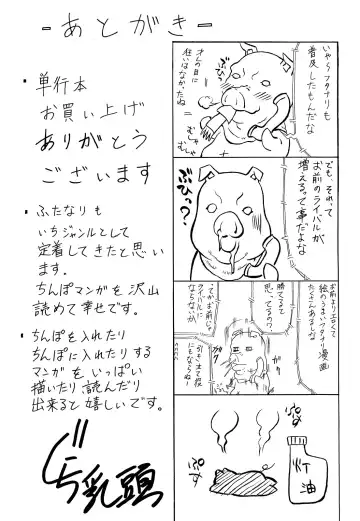 -あとがき-
・単行本
お買い上げ
ありがとう
ございます
・ふたなりも
いちジャンルとして
定着してきたと思い
ます。
ちんぽマンガを沢山
読めて幸せです。
・ちんぽを入れたり
ちんぽに入れたりする
マンガをいっぱい
描いたり、読んだり
出来ると嬉しいです。
乳頭
いやらフタナリも
普及したもんだな
オレの目に
狂いはなかったね
むしゃ
むしゃ
でも、それって
お前のライバルが
増えるって事だよな
ぶひっ?
お前より上手くて
絵のうまいフタナリ漫画
たくさんあるよな
勝てると
思ってるの?
てかお前じゃ
ライバルに
ならないか
引き立て役
にもならね!
ぷす
ぷす
灯油